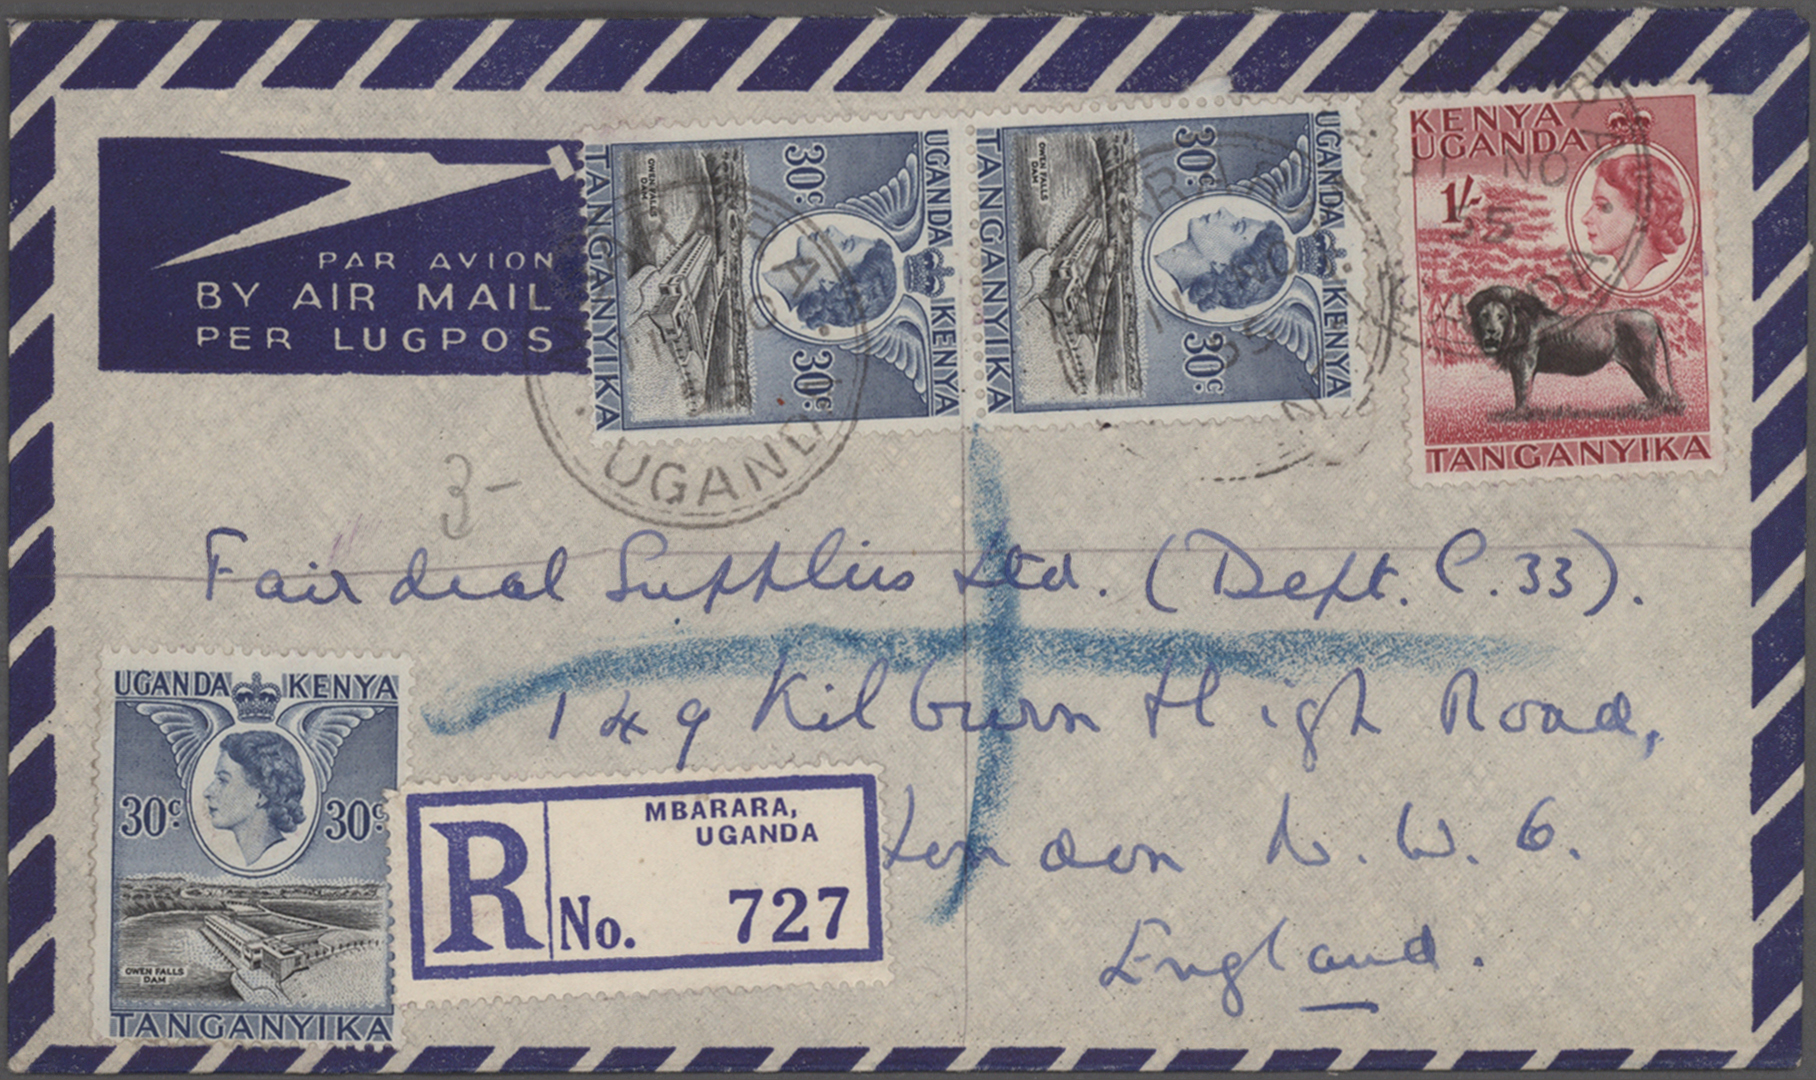 PAR AVION
BY AIR MAIL
PER LUGPOS
UGANDA KENYA
30c 30c
OWEN FALLS
DAM
TANGANYIKA
UGANDA KENYA
30c 30c
OWEN FALLS
DAM
TANGANYIKA
KENYA
UGANDA
1/-
TANGANYIKA
UGANDA
NO
55
3-
Fairdeal Supplies Ltd. (Dept. C.33).
149 Kilburn High Road,
London N.W.6.
England.
UGANDA KENYA
30c 30c
OWEN FALLS
DAM
TANGANYIKA
R
MBARARA,
UGANDA
No. 727